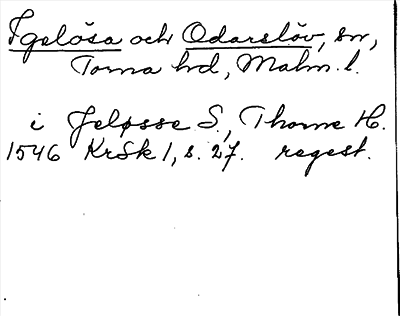 Igelösa och Odarslöv, sn,
Torna hd, Malm. l.
i Jeløsse S., Thorne H.
1546 KrSk 1, s. 27. regest.